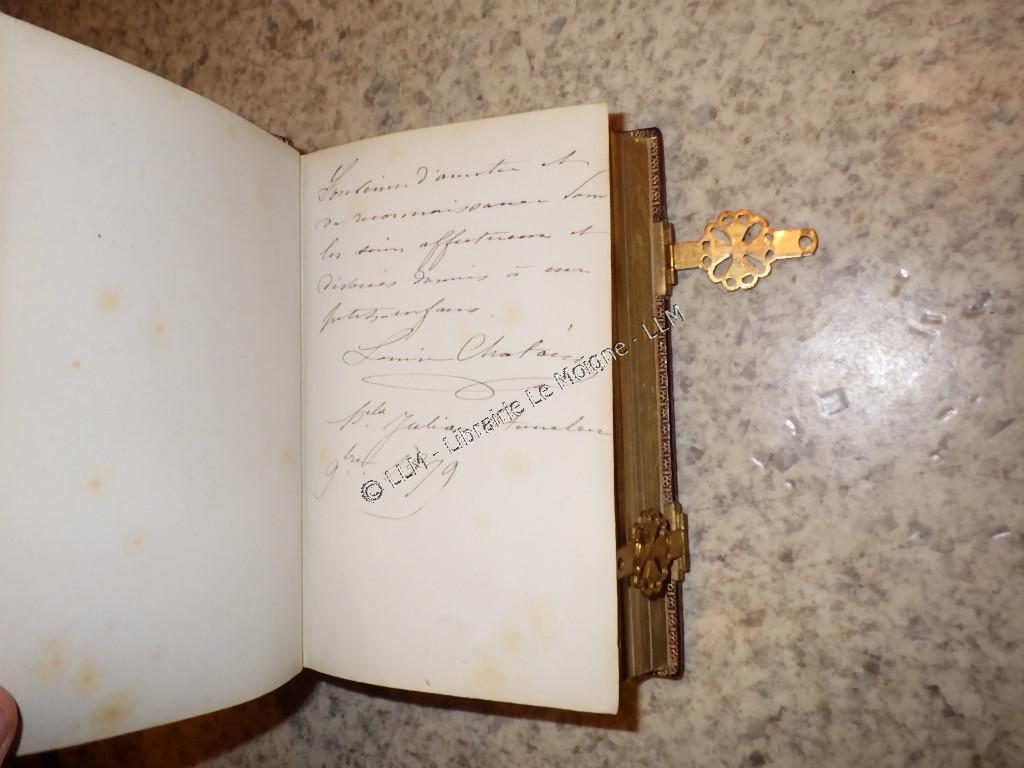 Souvenir d'amitié et
de reconnaissance pour
les soins affectueux et
dévoués donnés à mes
petits-enfans.
Louise
Julia
9bre 9
© LLM - Librairie Le Moigne - LLM